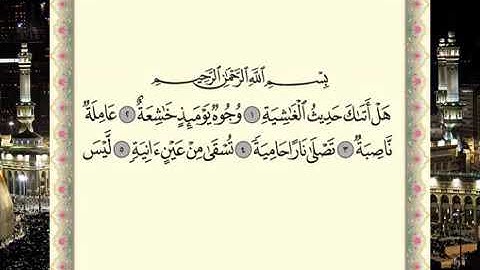 بِسْمِ ٱللَّهِ ٱلرَّحْمَٰنِ ٱلرَّحِيمِ
هَلْ أَتَىٰكَ حَدِيثُ ٱلْغَٰشِيَةِ ١ وُجُوهٌ يَوْمَئِذٍ خَٰشِعَةٌ ٢ عَامِلَةٌ
نَّاصِبَةٌ ٣ تَصْلَىٰ نَارًا حَامِيَةً ٤ تُسْقَىٰ مِنْ عَيْنٍ ءَانِيَةٍ ٥ لَّيْسَ